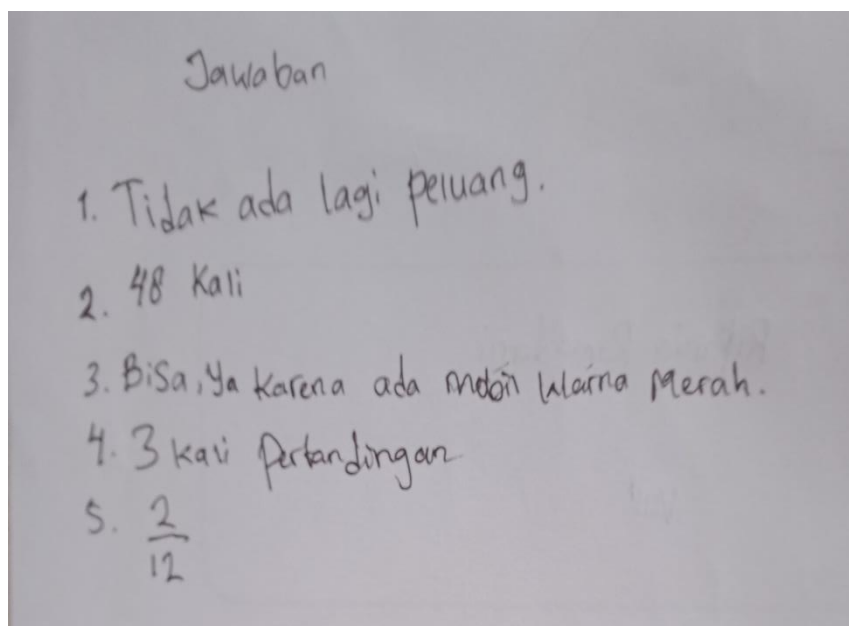 Jawaban
1. Tidak ada lagi peluang.
2. 48 Kali
3. Bisa, Ya Karena ada mobil Warna Merah.
4. 3 kali Pertandingan
5. 2/12